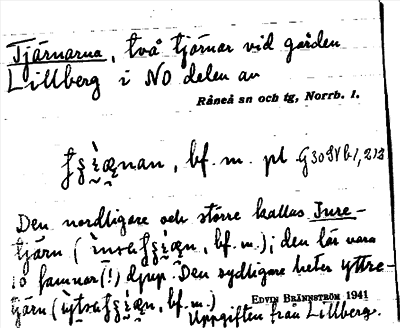 Tjärnarna, två tjärnar vid gården
Lillberg i NO delen av
Råneå sn och tg, Norrb. l.
bf. m. pl
Den nordligare och större kallas Inre-
tjärn ( bf. m.); den lär vara
10 famnar(!) djup. Den sydligare heter yttre-
tjärn ( bf. m.)
EDVIN BRÄNNSTRÖM 1941
Uppgiften från Lillberg.